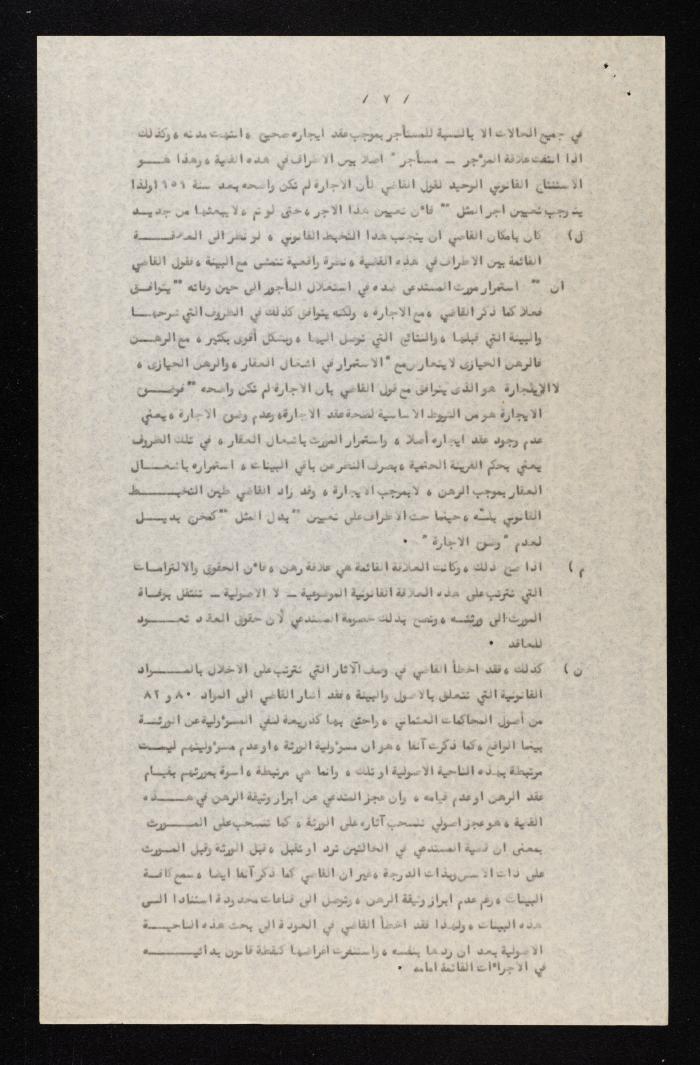 / ٧ /
في جميع الحالات الا بالنسبة للمستأجر بموجب عقد ايجاره صحيح ، انتهت مدته ، وكذلك
اذا انتفت علاقة المؤجر ــ مستأجر " اصلا بين الاطراف في هذه القضية ، وهذا هــو
الاستنتاج القانوني الوحيد لقول القاضي لأن الاجارة لم تكن واضحه بعد سنة ١٩٥١ ولذا
يتوجب تعيين اجر المثل "" فان تعيين هذا الاجر ، حتى لو تم ، لا يبعثها من جديــد
ل) كان بامكان القاضي ان يتجنب هذا التخبط القانوني ، لو نظر الى العلاقــة
القائمة بين الاطراف في هذه القضية ، نظرة واقعية تتمشى مع البينة ، فقول القاضي
ان "" استمرار مورث المستدعى ضده في استغلال المأجور الى حين وفاته "" يتوافــق
فعلا كما ذكر القاضي ، مع الاجارة ، ولكنه يتوافق كذلك في الظروف التي شرحهــا
والبينة التي قبلها ، والنتائج التي توصل اليها ، وبشكل أقوى بكثير ، مع الرهــن
فالرهن الحيازى لا يتعارض مع " الاستمرار في اشغال العقار ، والرهن الحيازى ،
لا الايجارة هو الذى يتوافق مع قول القاضي بان الاجارة لم تكن واضحه "" فوضــوح
الايجارة هو من الشروط الاساسية لصحة عقد الاجارة، وعدم وضوح الاجارة ، يعني
عدم وجود عقد ايجاره أصلا ، واستمرار المورث باشغال العقار ، في تلك الظروف
يعني بحكم القرينة الحتمية ، بصرف النظر عن باقي البينات ، استمراره باشغــال
العقار بموجب الرهن ، لا بموجب الايجارة ، وقد زاد القاضي طين التخبــط
القانوني بلــّه ، حينما حث الاطراف على تعيين "" بدل المثل "" كمخرج بديــل
لعدم " وضوح الاجارة " .
م) اذا صح ذلك ، وكانت العلاقة القائمة هي علاقة رهن ، فان الحقوق والالتزامــات
التي تترتب على هذه العلاقة القانونية الموضوعية ــ لا الاصولية ــ تنتقل بوفــاة
المورث الى ورثتــه ، وتصح بذلك خصومة المستدعي لأن حقوق العقد تعــود
للعاقد .
ن) كذلك ، فقد اخطأ القاضي في وصف الآثار التي تترتب على الاخلال بالمــواد
القانونية التي تتعلق بالاصول والبينة ، فقد أشار القاضي الى المواد ٨٠ و ٨٢
من أصول المحاكمات العثماني ، واحتج بها كذريعة لنفي المسؤولية عن الورثــة
بينما الواقع ، كما ذكرت آنفا ، هو ان مسؤولية الورثة ، او عدم مسؤوليتهم ليســت
مرتبطة بهذه الناحية الاصولية او تلك ، وانما هي مرتبطة ، اسوة بمورثهم بقيــام
عقد الرهن او عدم قيامه ، وان عجز المتدعي عن ابراز وثيقة الرهن في هــذه
القضية ، هو عجز اصولي تنسحب آثاره على الورثة ، كما تنسحب على المــورث
بمعنى ان قضية المستدعي في الحالتين ترد او تقبل ، قبل الورثة وقبل المــورث
على ذات الاسس وبذات الدرجة ، غير ان القاضي كما ذكر آنفا ايضا ، سمع كافــة
البينات ، رغم عدم ابراز وثيقة الرهن ، وتوصل الى قناعات محدودة استنادا الــى
هذه البينات ، ولهذا فقد اخطأ القاضي في العودة الى بحث هذه الناحيــة
الاصولية بعد ان ردها بنفسه ، واستنفدت اغراضها كنقطة قانون بدائيــه
في الاجراءات القائمة امامه .